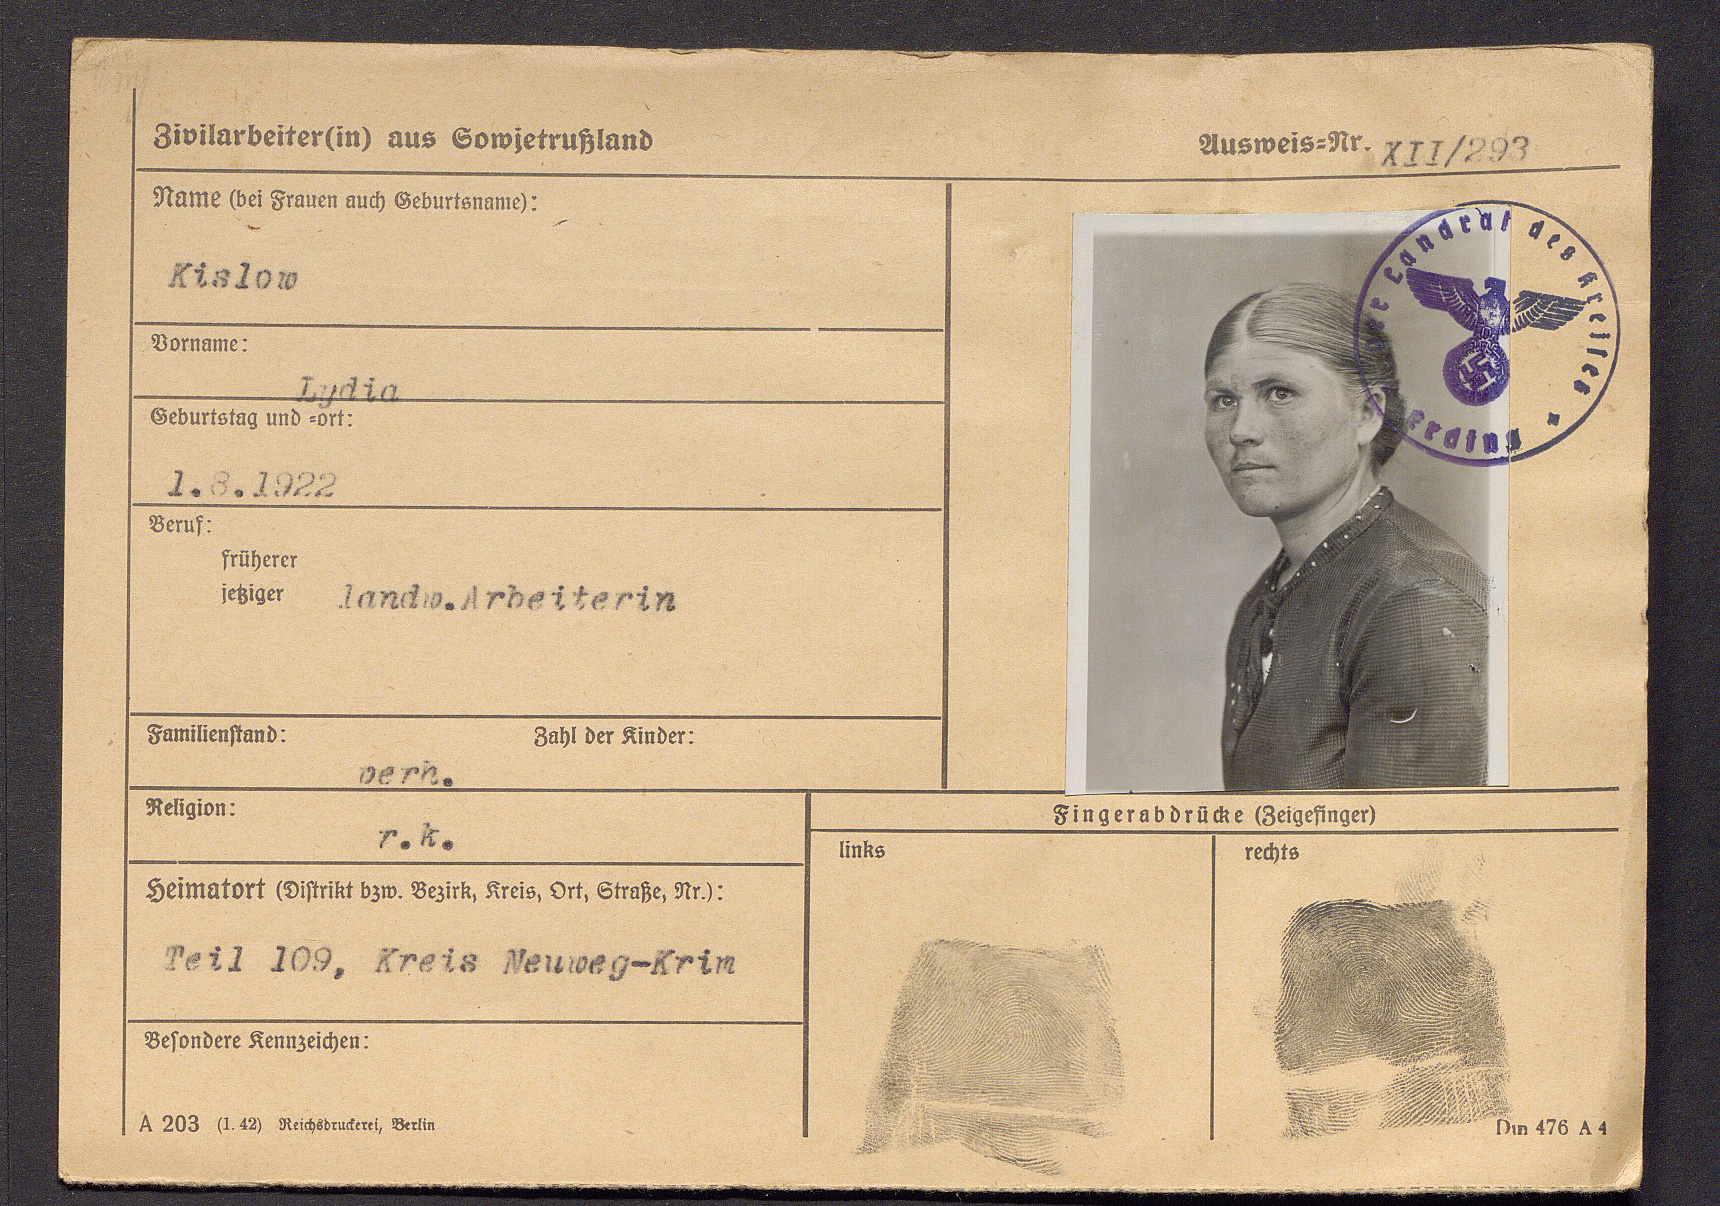 Zivilarbeiter(in) aus Sowjetrußland
Ausweis=Nr. XII/293
Name (bei Frauen auch Geburtsname):
Kislow
Vorname:
Lydia
Geburtstag und =ort:
1.8.1922
Beruf:
früherer
jetziger landw.Arbeiterin
Familienstand: Zahl der Kinder:
verh.
Religion:
r.k.
Heimatort (Distrikt bzw. Bezirk, Kreis, Ort, Straße, Nr.):
Teil 109, Kreis Neuweg-Krim
Besondere Kennzeichen:
A 203 (1. 42) Reichsdruckerei, Berlin
Der Landrat des Kreises
Erding
Fingerabdrücke (Zeigefinger)
links
rechts
Din 476 A 4